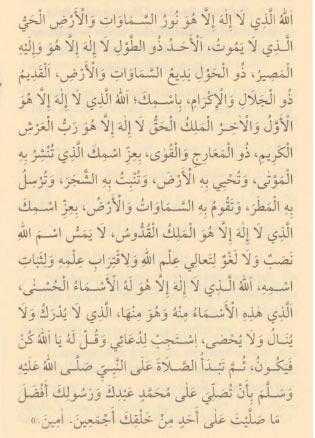 اَللهُ الَّذِي لَا إِلٰهَ إِلَّا هُوَ نُورُ السَّمَاوَاتِ وَالْأَرْضِ الْحَيُّ
الَّذِي لَا يَمُوتُ، اَلْأَحَدُ ذُو الطَّوْلِ لَا إِلٰهَ إِلَّا هُوَ وَإِلَيْهِ
الْمَصِيرُ، ذُو الْحَوْلِ بَدِيعُ السَّمَاوَاتِ وَالْأَرْضِ، اَلْقَدِيمُ
ذُو الْجَلَالِ وَالْإِكْرَامِ، بِاسْمِكَ؛ اَللهُ الَّذِي لَا إِلٰهَ إِلَّا هُوَ
الْأَوَّلُ وَالْاٰخِرُ الْمَلِكُ الْحَقُّ لَا إِلٰهَ إِلَّا هُوَ رَبُّ الْعَرْشِ
الْكَرِيمِ، ذُو الْمَعَارِجِ وَالْقُوٰى، بِعِزِّ اسْمِكَ الَّذِي تُنْشِرُ بِهِ
الْمَوْتٰى، وَتُحْيِي بِهِ الْأَرْضَ، وَتُنْبِتُ بِهِ الشَّجَرَ، وَتُرْسِلُ
بِهِ الْمَطَرَ، وَتَقُومُ بِهِ السَّمَاوَاتُ وَالْأَرْضُ، بِعِزِّ اسْمِكَ
الَّذِي لَا إِلٰهَ إِلَّا هُوَ الْمَلِكُ الْقُدُّوسُ، لَا يَمَسُّ اسْمَ اللهِ
نَصَبٌ وَلَا لَغْوٌ لِتَعَالِي عِلْمِ اللهِ وَلِاقْتِرَابِ عِلْمِهِ وَلِثَبَاتِ
اسْمِهِ، اَللهُ الَّذِي لَا إِلٰهَ إِلَّا هُوَ لَهُ الْأَسْمَاءُ الْحُسْنٰى،
اَلَّذِي هٰذِهِ الْأَسْمَاءُ مِنْهُ وَهُوَ مِنْهَا، اَلَّذِي لَا يُدْرَكُ وَلَا
يُنَالُ وَلَا يُحْصٰى، اِسْتَجِبْ لِدُعَائِي وَقُلْ لَهُ يَا اَللهُ كُنْ
فَيَكُونُ، ثُمَّ تَبْدَأُ الصَّلَاةَ عَلَى النَّبِيِّ صَلَّى اللهُ عَلَيْهِ
وَسَلَّمَ بِأَنْ تُصَلِّيَ عَلٰى مُحَمَّدٍ عَبْدِكَ وَرَسُولِكَ أَفْضَلَ
مَا صَلَّيْتَ عَلٰى أَحَدٍ مِنْ خَلْقِكَ أَجْمَعِينَ. اٰمِينَ.»